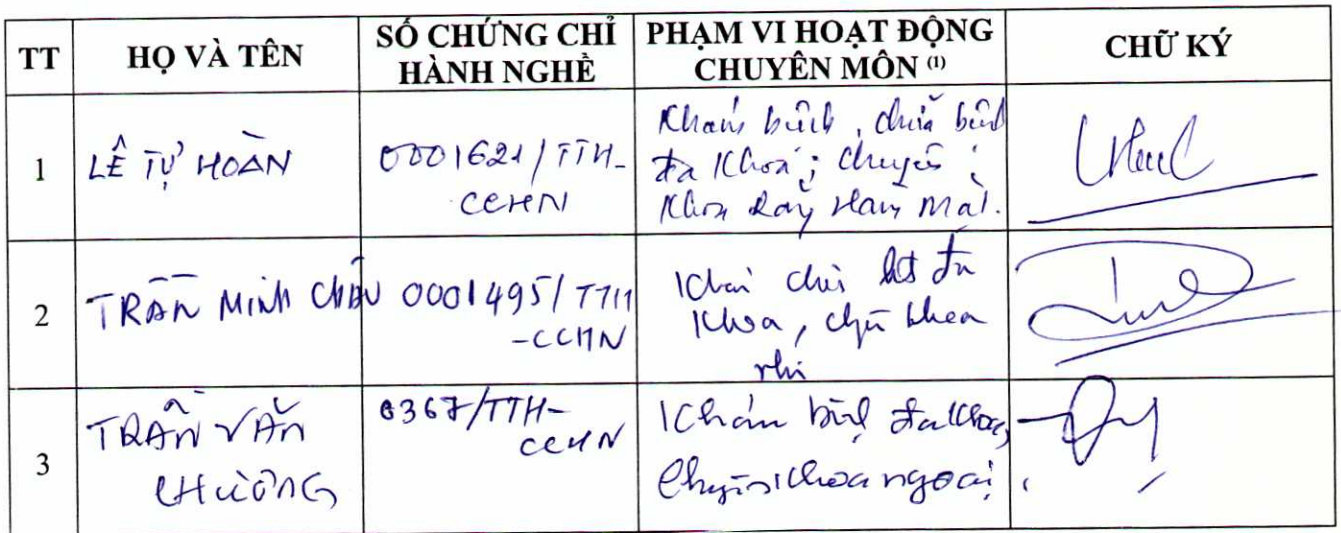 TT
HỌ VÀ TÊN
SỐ CHỨNG CHỈ
HÀNH NGHỀ
PHẠM VI HOẠT ĐỘNG
CHUYÊN MÔN (1)
CHỮ KÝ
1
LÊ TỰ HOÀN
0001621/TTH-
CCHN
Khám bệnh, chữa bệnh
đa khoa; chuyên
khoa Răng Hàm Mặt.
2
TRẦN MINH CHÂU
0001495/TTH
-CCHN
Khám chữa đa
khoa, chuyên khoa
nhi
3
TRẦN VĂN
CHƯƠNG
0367/TTH-
CCHN
Khám bệnh đa khoa,
Chuyên khoa ngoại